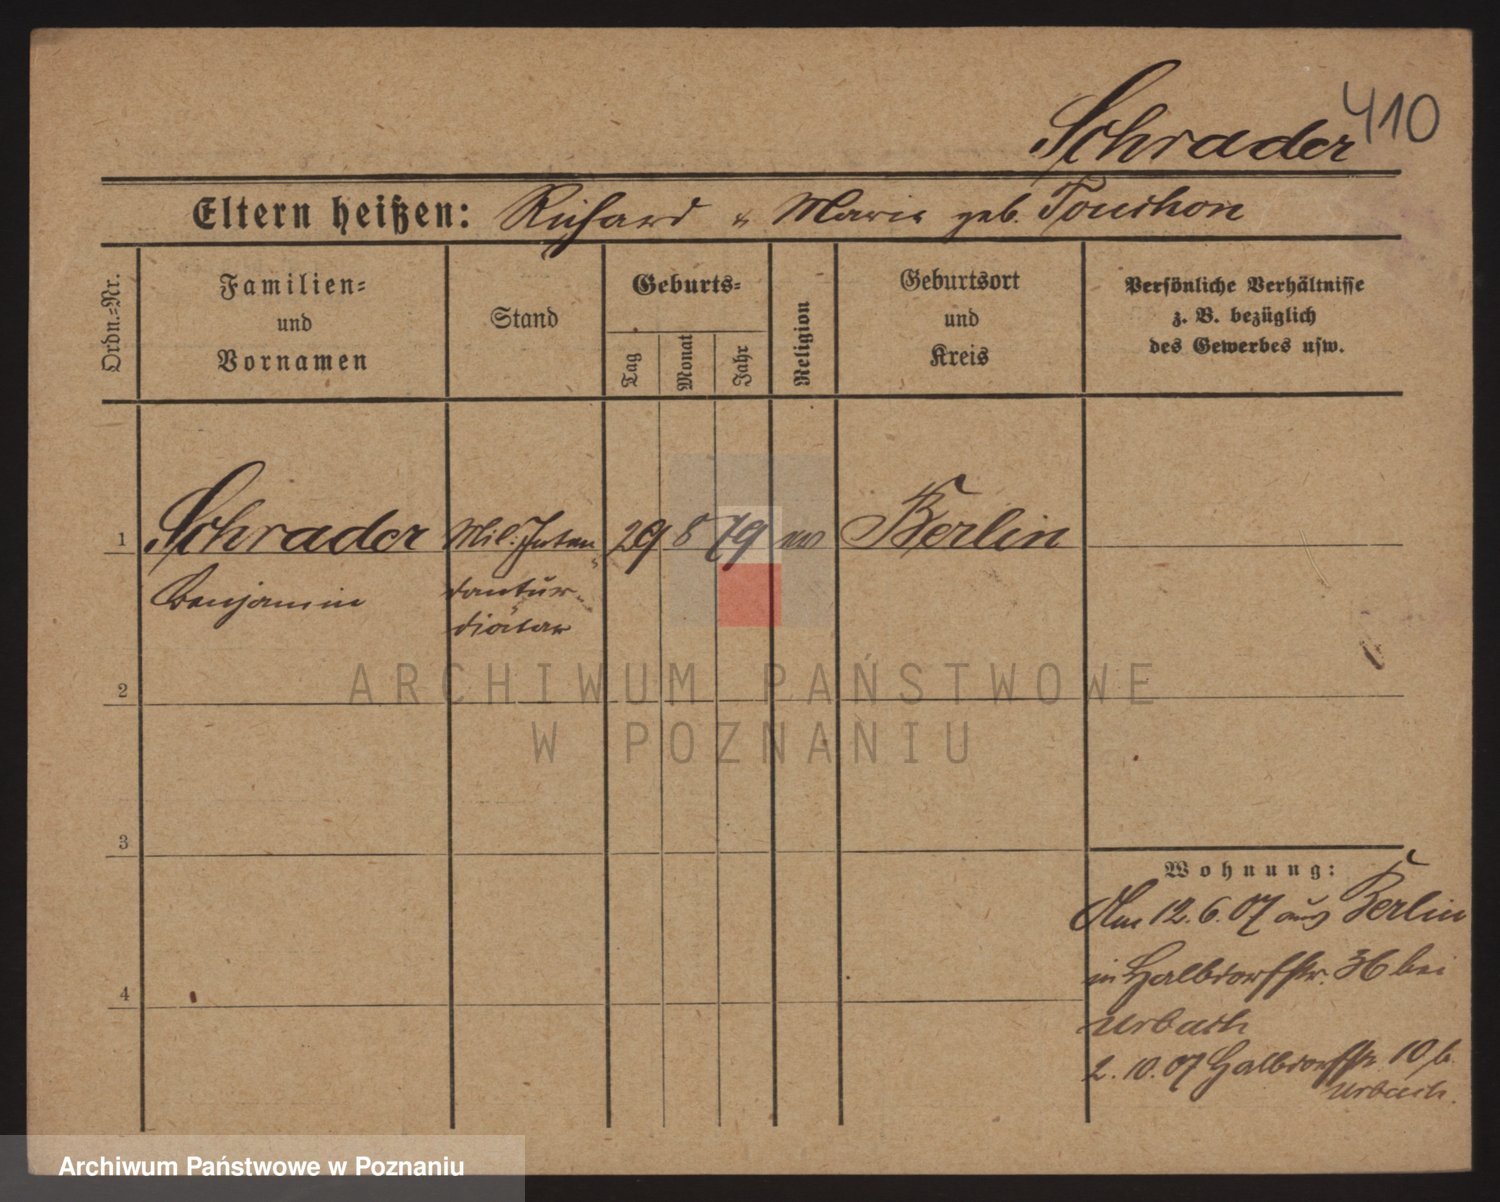 410
Schrader
Eltern heißen: Richard u Marie geb. Touchon
Ordn.=Nr.
Familien=
und
Vornamen
Stand
Geburts=
Tag
Monat
Jahr
Religion
Geburtsort
und
Kreis
Persönliche Verhältnisse
z. B. bezüglich
des Gewerbes usw.
1 Schrader Mil. Inten= 29 8 79 Berlin
Benjamin dantur
diätar
2
3
4
Wohnung:
Am 12.6.07 aus Berlin
in Halbdorfstr. 36 bei
Urbach
2.10.07 Halbdorfstr 10 b.
Urbach.
ARCHIWUM PAŃSTWOWE
W POZNANIU
Archiwum Państwowe w Poznaniu